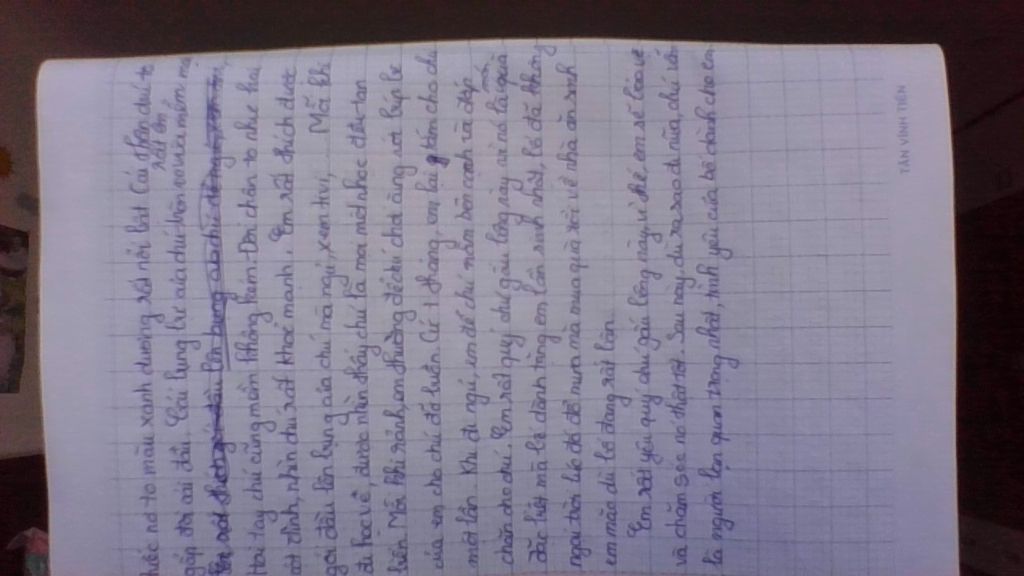 màu xanh dương rất nổi bật. Cái thân chú to
gấp đôi cái đầu. Cái bụng lúc của chú tròn vo vừa mềm
rất êm
Hai tay chú cũng mềm không kém. Đôi chân to như hai
cột đình, nhìn chú rất khoẻ mạnh. Em rất thích được
gối đầu lên bụng của chú mà ngủ, xem tivi, ... Mỗi khi
đi học về, được nhìn thấy chú là mọi mệt nhọc đều tan
biến. Mỗi khi rảnh, em thường để chú chơi cùng với búp bê
của em cho chú đỡ buồn. Cứ 1 tháng, em lại tắm cho chú
một lần. Khi đi ngủ, em để chú nằm bên cạnh và đắp
chăn cho chú. Em rất quý chú gấu bông này vì nó là món quà
đặc biệt mà bố dành tặng em lần sinh nhật, bố đã không
ngại trời lúc đó đổ mưa mà mua quà rồi về nhà ăn sinh
em mặc dù bố đang rất bận.
Em rất yêu quý chú gấu bông này vì thế, em sẽ bảo vệ
và chăm sóc nó thật tốt. Sau này, dù ra sao đi nữa, chú vẫn
là người bạn quan trọng nhất, tình yêu của bố dành cho em.
TÂN VĨNH TIẾN